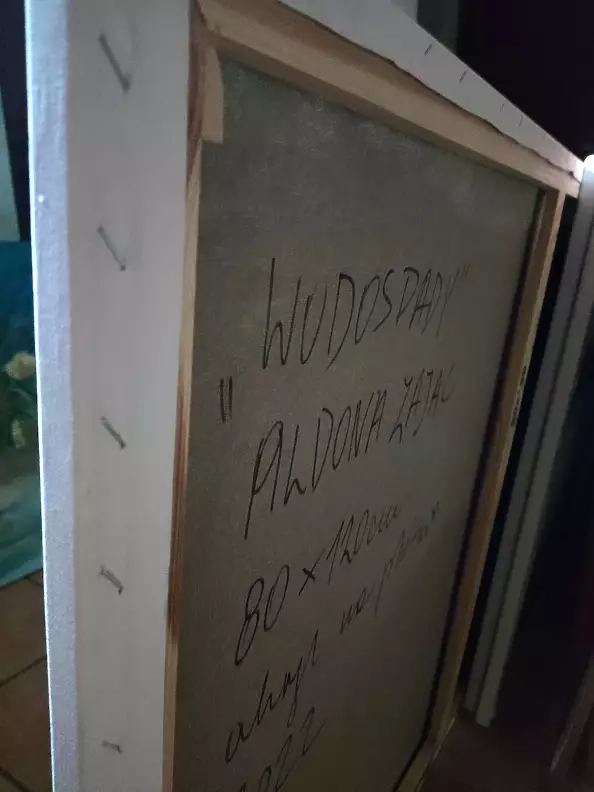 "WODOSPADY"
ALDONA ZAJĄC
80 x 120cm
akryl na płótnie
2022